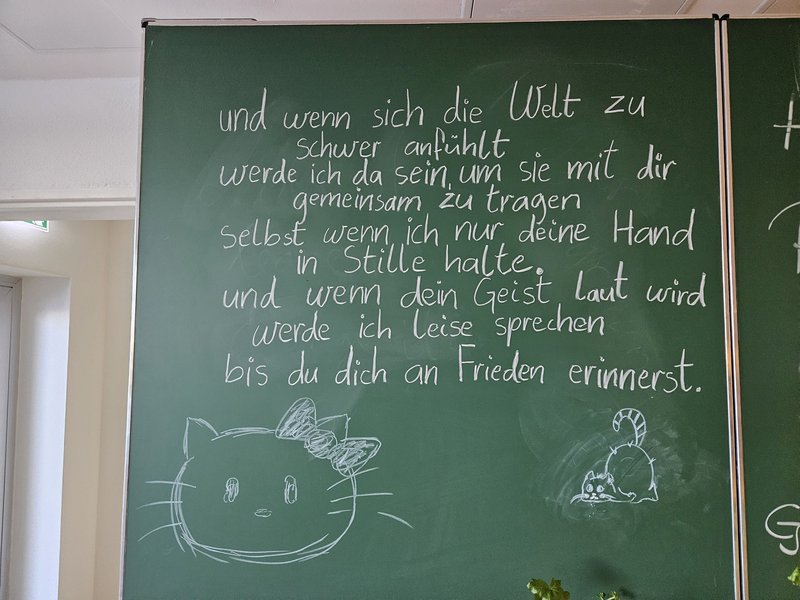 und wenn sich die Welt zu
schwer anfühlt
werde ich da sein, um sie mit dir
gemeinsam zu tragen
selbst wenn ich nur deine Hand
in Stille halte.
und wenn dein Geist laut wird
werde ich leise sprechen
bis du dich an Frieden erinnerst.